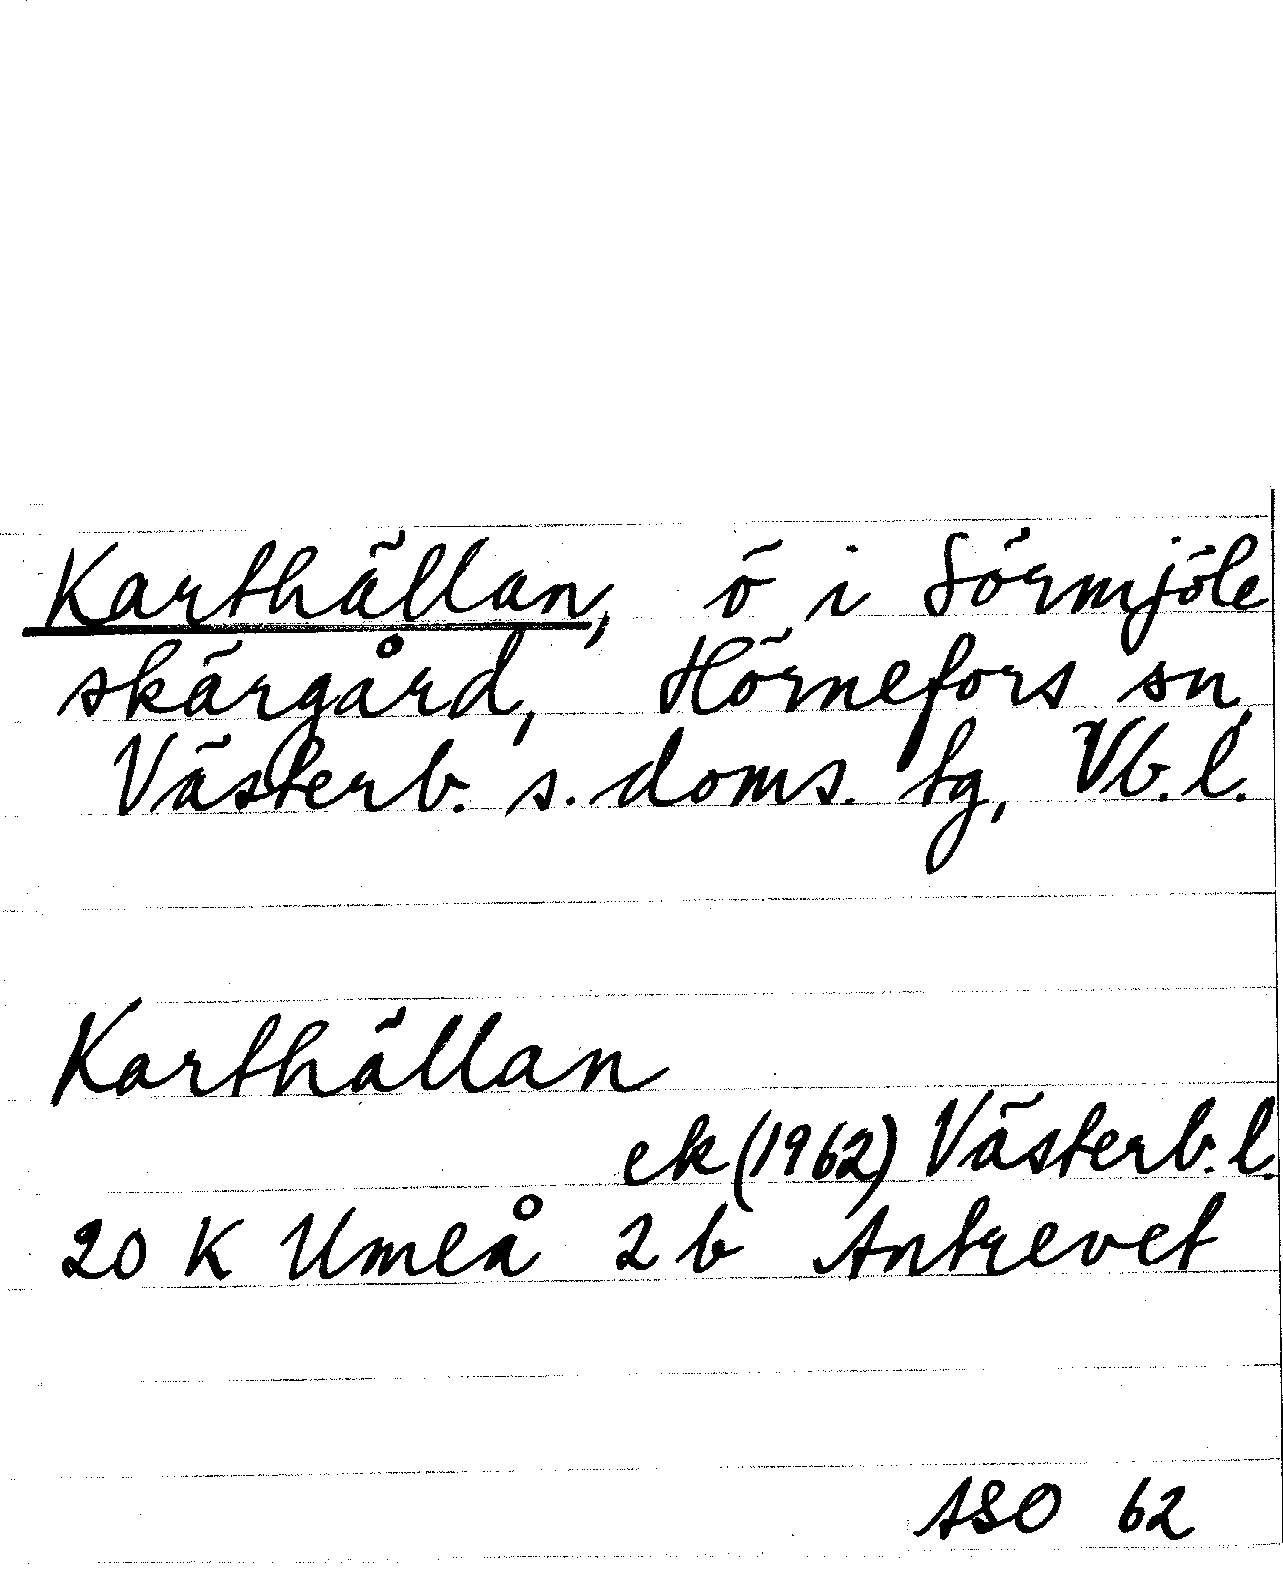 Karthällan, ö i Sörmjöle
skärgård, Hörnefors sn,
Västerb. s. doms. tg, Vb. l.
Karthällan
ek (1962) Västerb. l.
20 K Umeå 2 b Antrevet
ASO 62